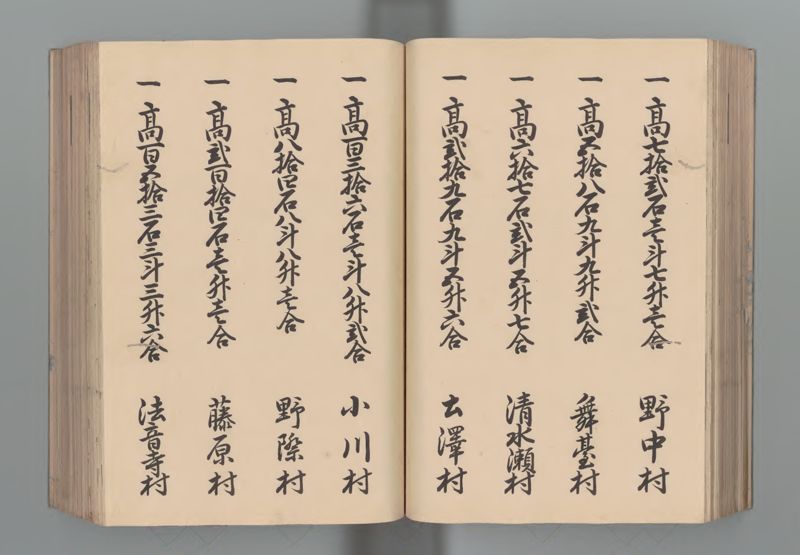 一高七拾弐石壱斗七升壱合 野中村
一高五拾八石九斗九升弐合 舞臺村
一高六拾七石弐斗五升七合 清水瀬村
一高弐拾九石九斗五升六合 圡澤村
一高百三拾六石壱斗八升弐合 小川村
一高八拾四石八斗八升壱合 野際村
一高弐百拾四石壱升壱合 藤原村
一高百五拾三石三斗三升六合 法音寺村